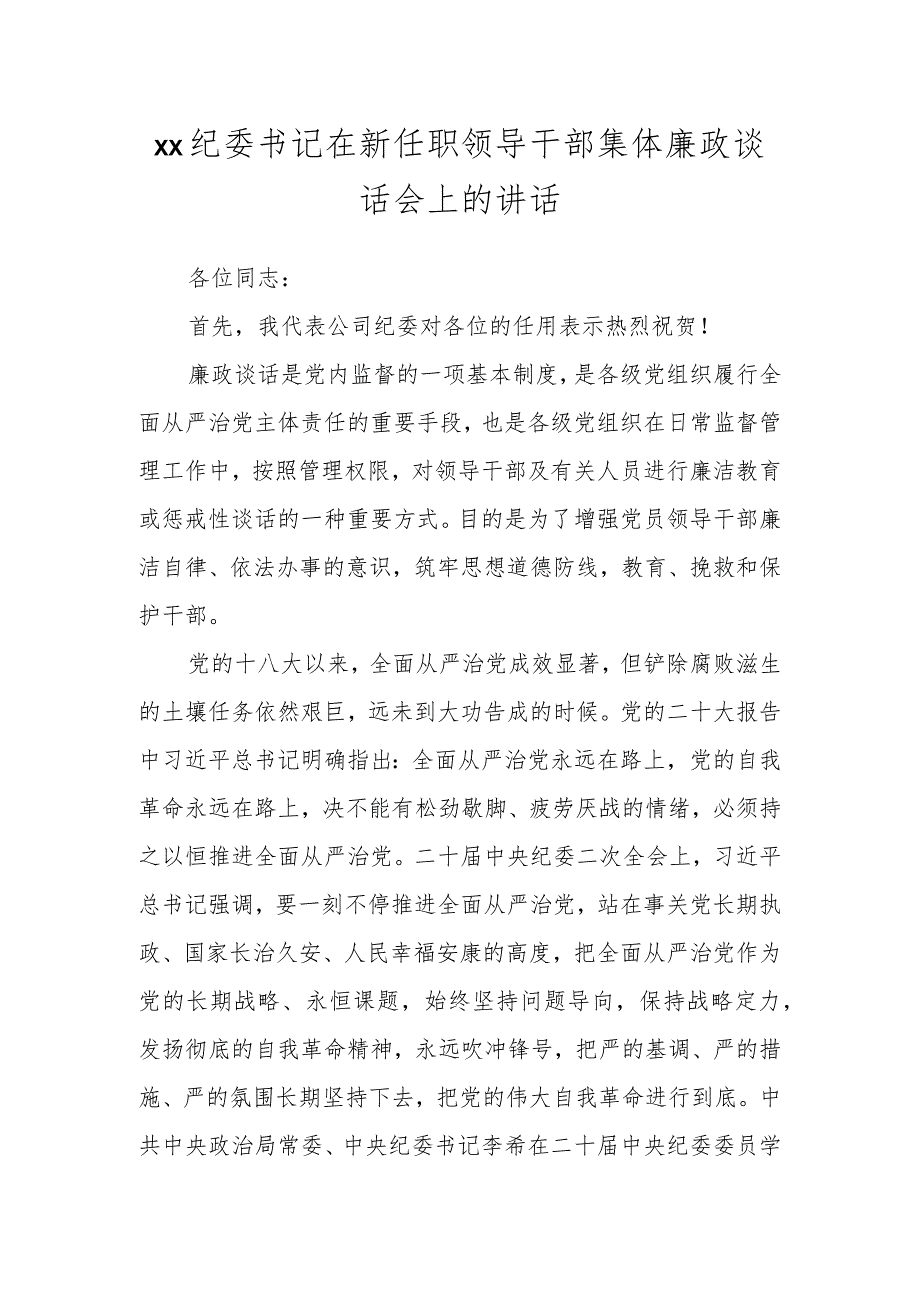 xx纪委书记在新任职领导干部集体廉政谈
话会上的讲话
各位同志：
首先，我代表公司纪委对各位的任用表示热烈祝贺！
廉政谈话是党内监督的一项基本制度，是各级党组织履行全
面从严治党主体责任的重要手段，也是各级党组织在日常监督管
理工作中，按照管理权限，对领导干部及有关人员进行廉洁教育
或惩戒性谈话的一种重要方式。目的是为了增强党员领导干部廉
洁自律、依法办事的意识，筑牢思想道德防线，教育、挽救和保
护干部。
党的十八大以来，全面从严治党成效显著，但铲除腐败滋生
的土壤任务依然艰巨，远未到大功告成的时候。党的二十大报告
中习近平总书记明确指出：全面从严治党永远在路上，党的自我
革命永远在路上，决不能有松劲歇脚、疲劳厌战的情绪，必须持
之以恒推进全面从严治党。二十届中央纪委二次全会上，习近平
总书记强调，要一刻不停推进全面从严治党，站在事关党长期执
政、国家长治久安、人民幸福安康的高度，把全面从严治党作为
党的长期战略、永恒课题，始终坚持问题导向，保持战略定力，
发扬彻底的自我革命精神，永远吹冲锋号，把严的基调、严的措
施、严的氛围长期坚持下去，把党的伟大自我革命进行到底。中
共中央政治局常委、中央纪委书记李希在二十届中央纪委委员学